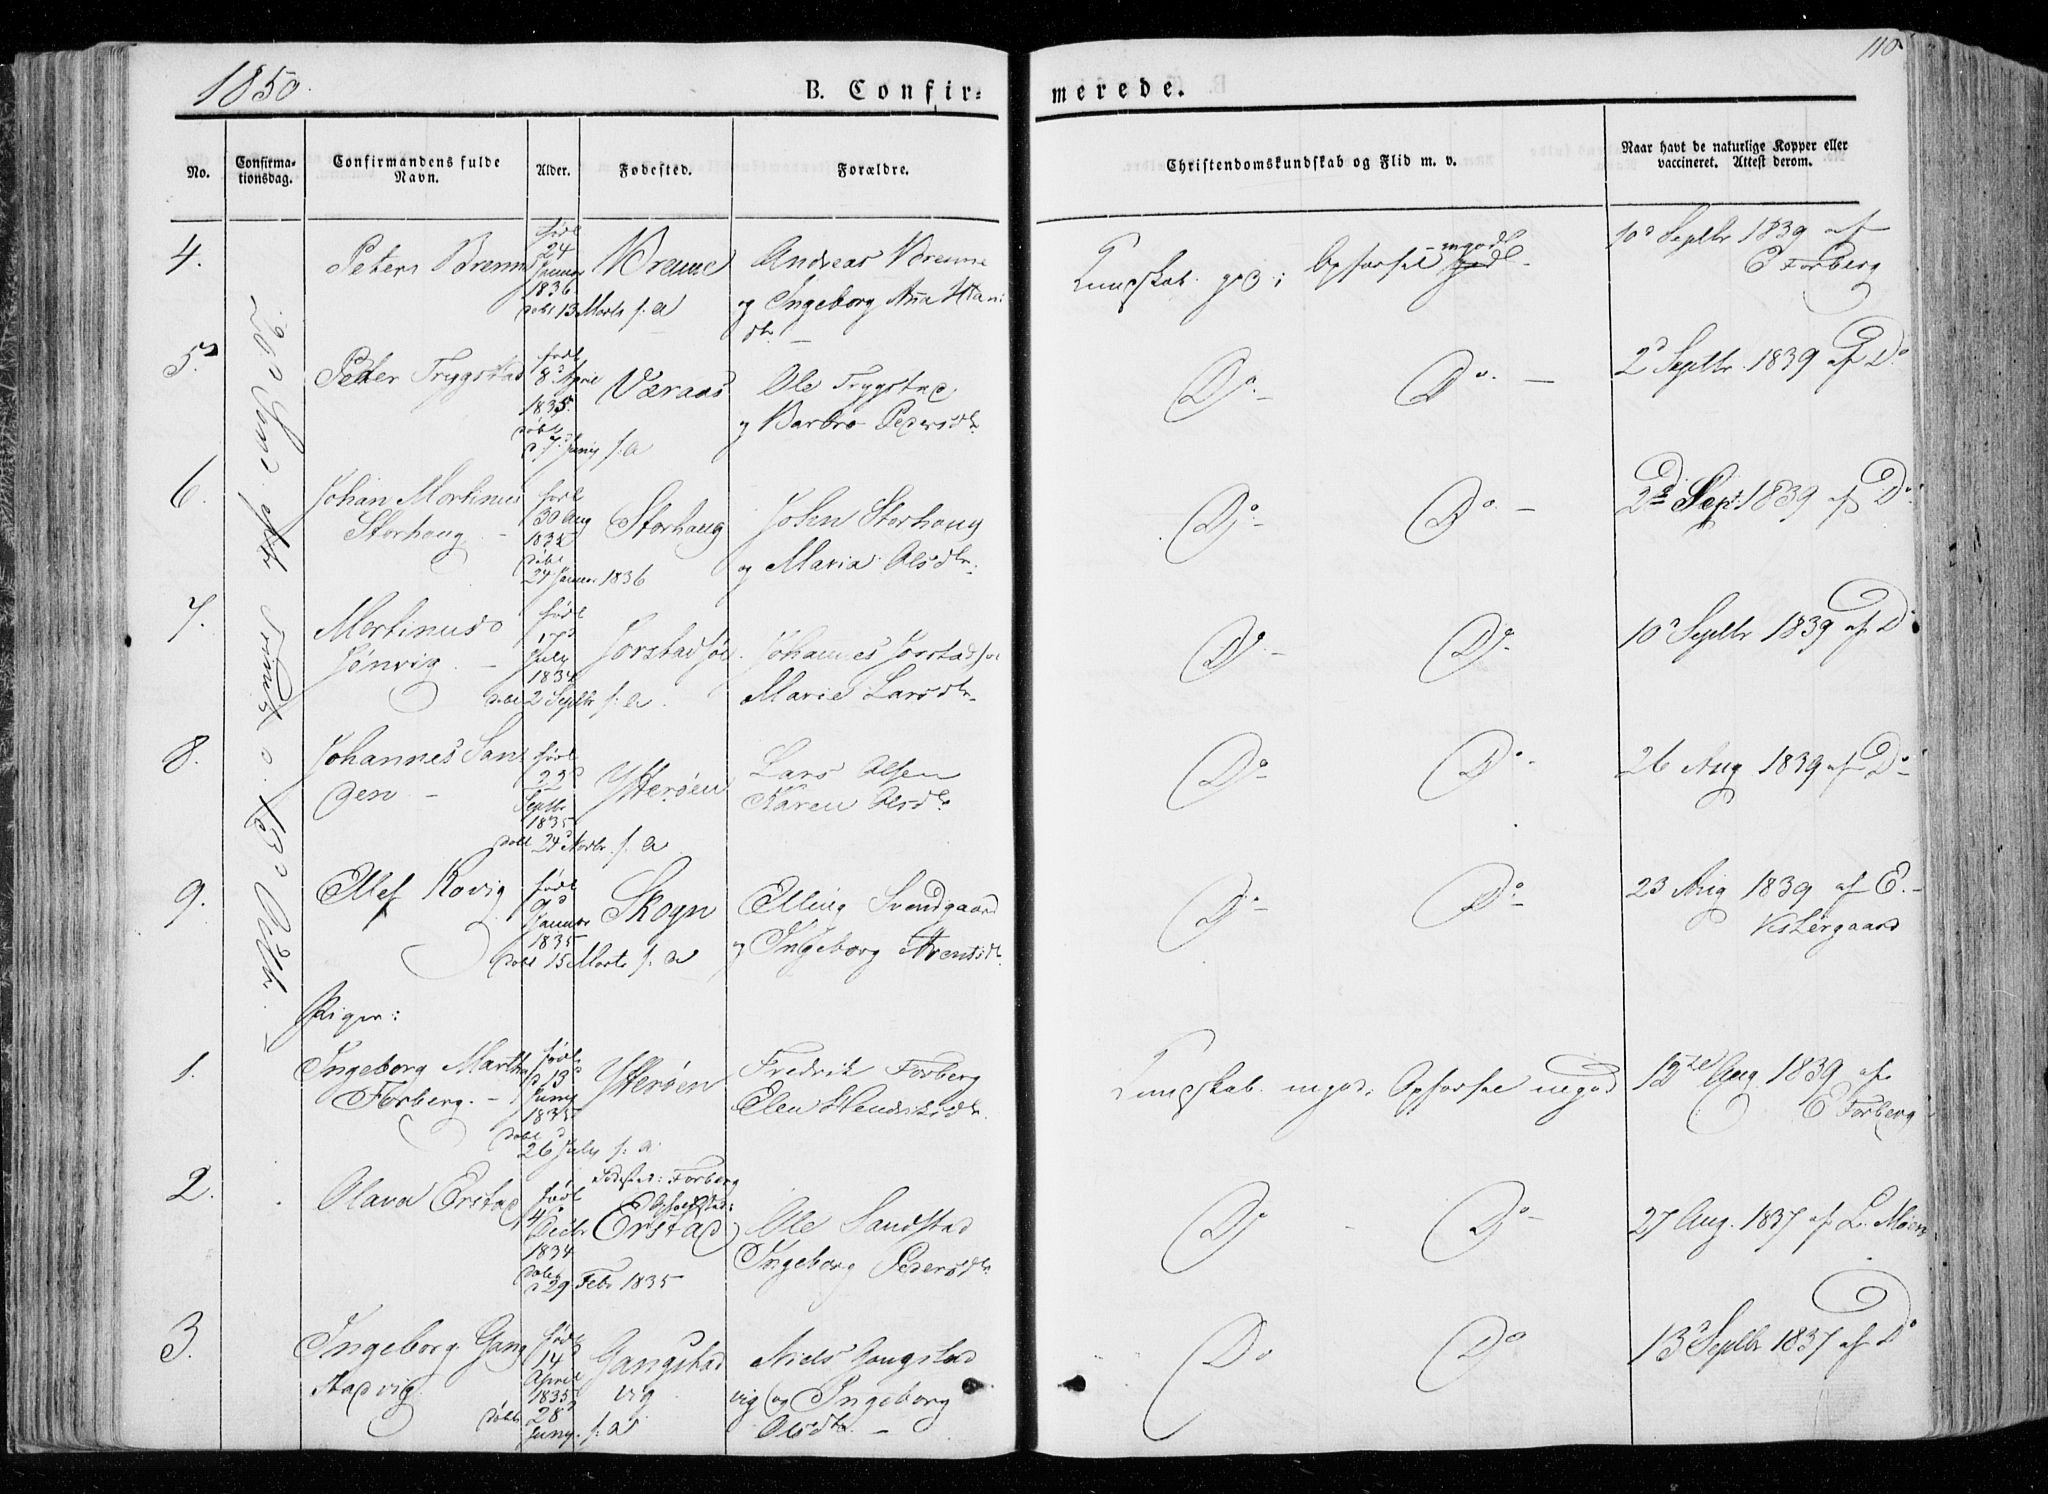 1850.
110
B. Confir-
merede.
No.
Confirma-
tionsdag.
Confirmandens fulde
Navn.
Alder.
Fødested.
Forældre.
Christendomskundskab og Flid m. v.
Naar havt de naturlige Kopper eller
vaccineret. Attest derom.
20d Sønd. efter Trinit. o: 13d Octbr.
4.
Peter Brenn
født
24
Januar
1836
døbt 13 Marts s. a
Brenne
Andreas Brenne
og Ingeborg Ana
dtr.
Kundskab g
Opførsel mgodt
10d Septbr 1839 af
E Forberg
5.
Peter Trygstad
født
8d April
1835.
døbt
d 7d Junij s. a
Væraas
Ole Trygstad
og Barbro Pedersdtr.
Do.
Do.
2d Septbr. 1839 af Do
6.
Johan Mortinus
Storhaug
født
30 Aug
1835
døbt
24 Januar 1836
Storhaug
John Storhaug
og Maria Olsdtr.
Do
Do.
2d Sept 1839 af Do
7.
Mortinus
født
17d
July
1834
døbt 2 Septbr s. a.
Johannes
Marie Larsdtr.
Do.
Do.
10d Septbr 1839 af Do
8.
Johannes San
gen
født
22d
Septbr
1835
døbt 24d Novbr. s. a
Ytterøen
Lars Olsen
Karen Olsdtr.
Do
Do.
26 Aug 1839 af Do
9.
Ellef Rovig
født
9d
Januar
1835
døbt 15 Marts s. a
Skogn
Elling Svendgaard
og Ingeborg Arentsdtr.
Do
Do
23 Aug 1839 af E.
Vestergaard
Piger:
1.
Ingeborg Martha
Forberg.
født
d 13d
Juny
1835
døbt d
26 July s. a.
Ytterøen
Fredrik Forberg
Elen Hendriksdtr.
Kundskab. mgod. Opførsel mgod
13te Aug. 1839 af
E Forberg
2.
Olava Erstad
født
4d
Decbr
1834
døbt
d 29 Febr 1835
Fødested: Forberg
Opholdssted:
Erstad
Ole Sandstad
Ingeborg Pedersdtr.
Do
Do
27 Aug. 1837 af L. Moen
3.
Ingeborg Gang
stadvig
født
14
April
1835
døbt 28d
Juny. s. a
Gangstad
vig
Niels Gangstad
vig og Ingeborg
Olsdtr.
Do
Do
13d Septbr 1837 af Do